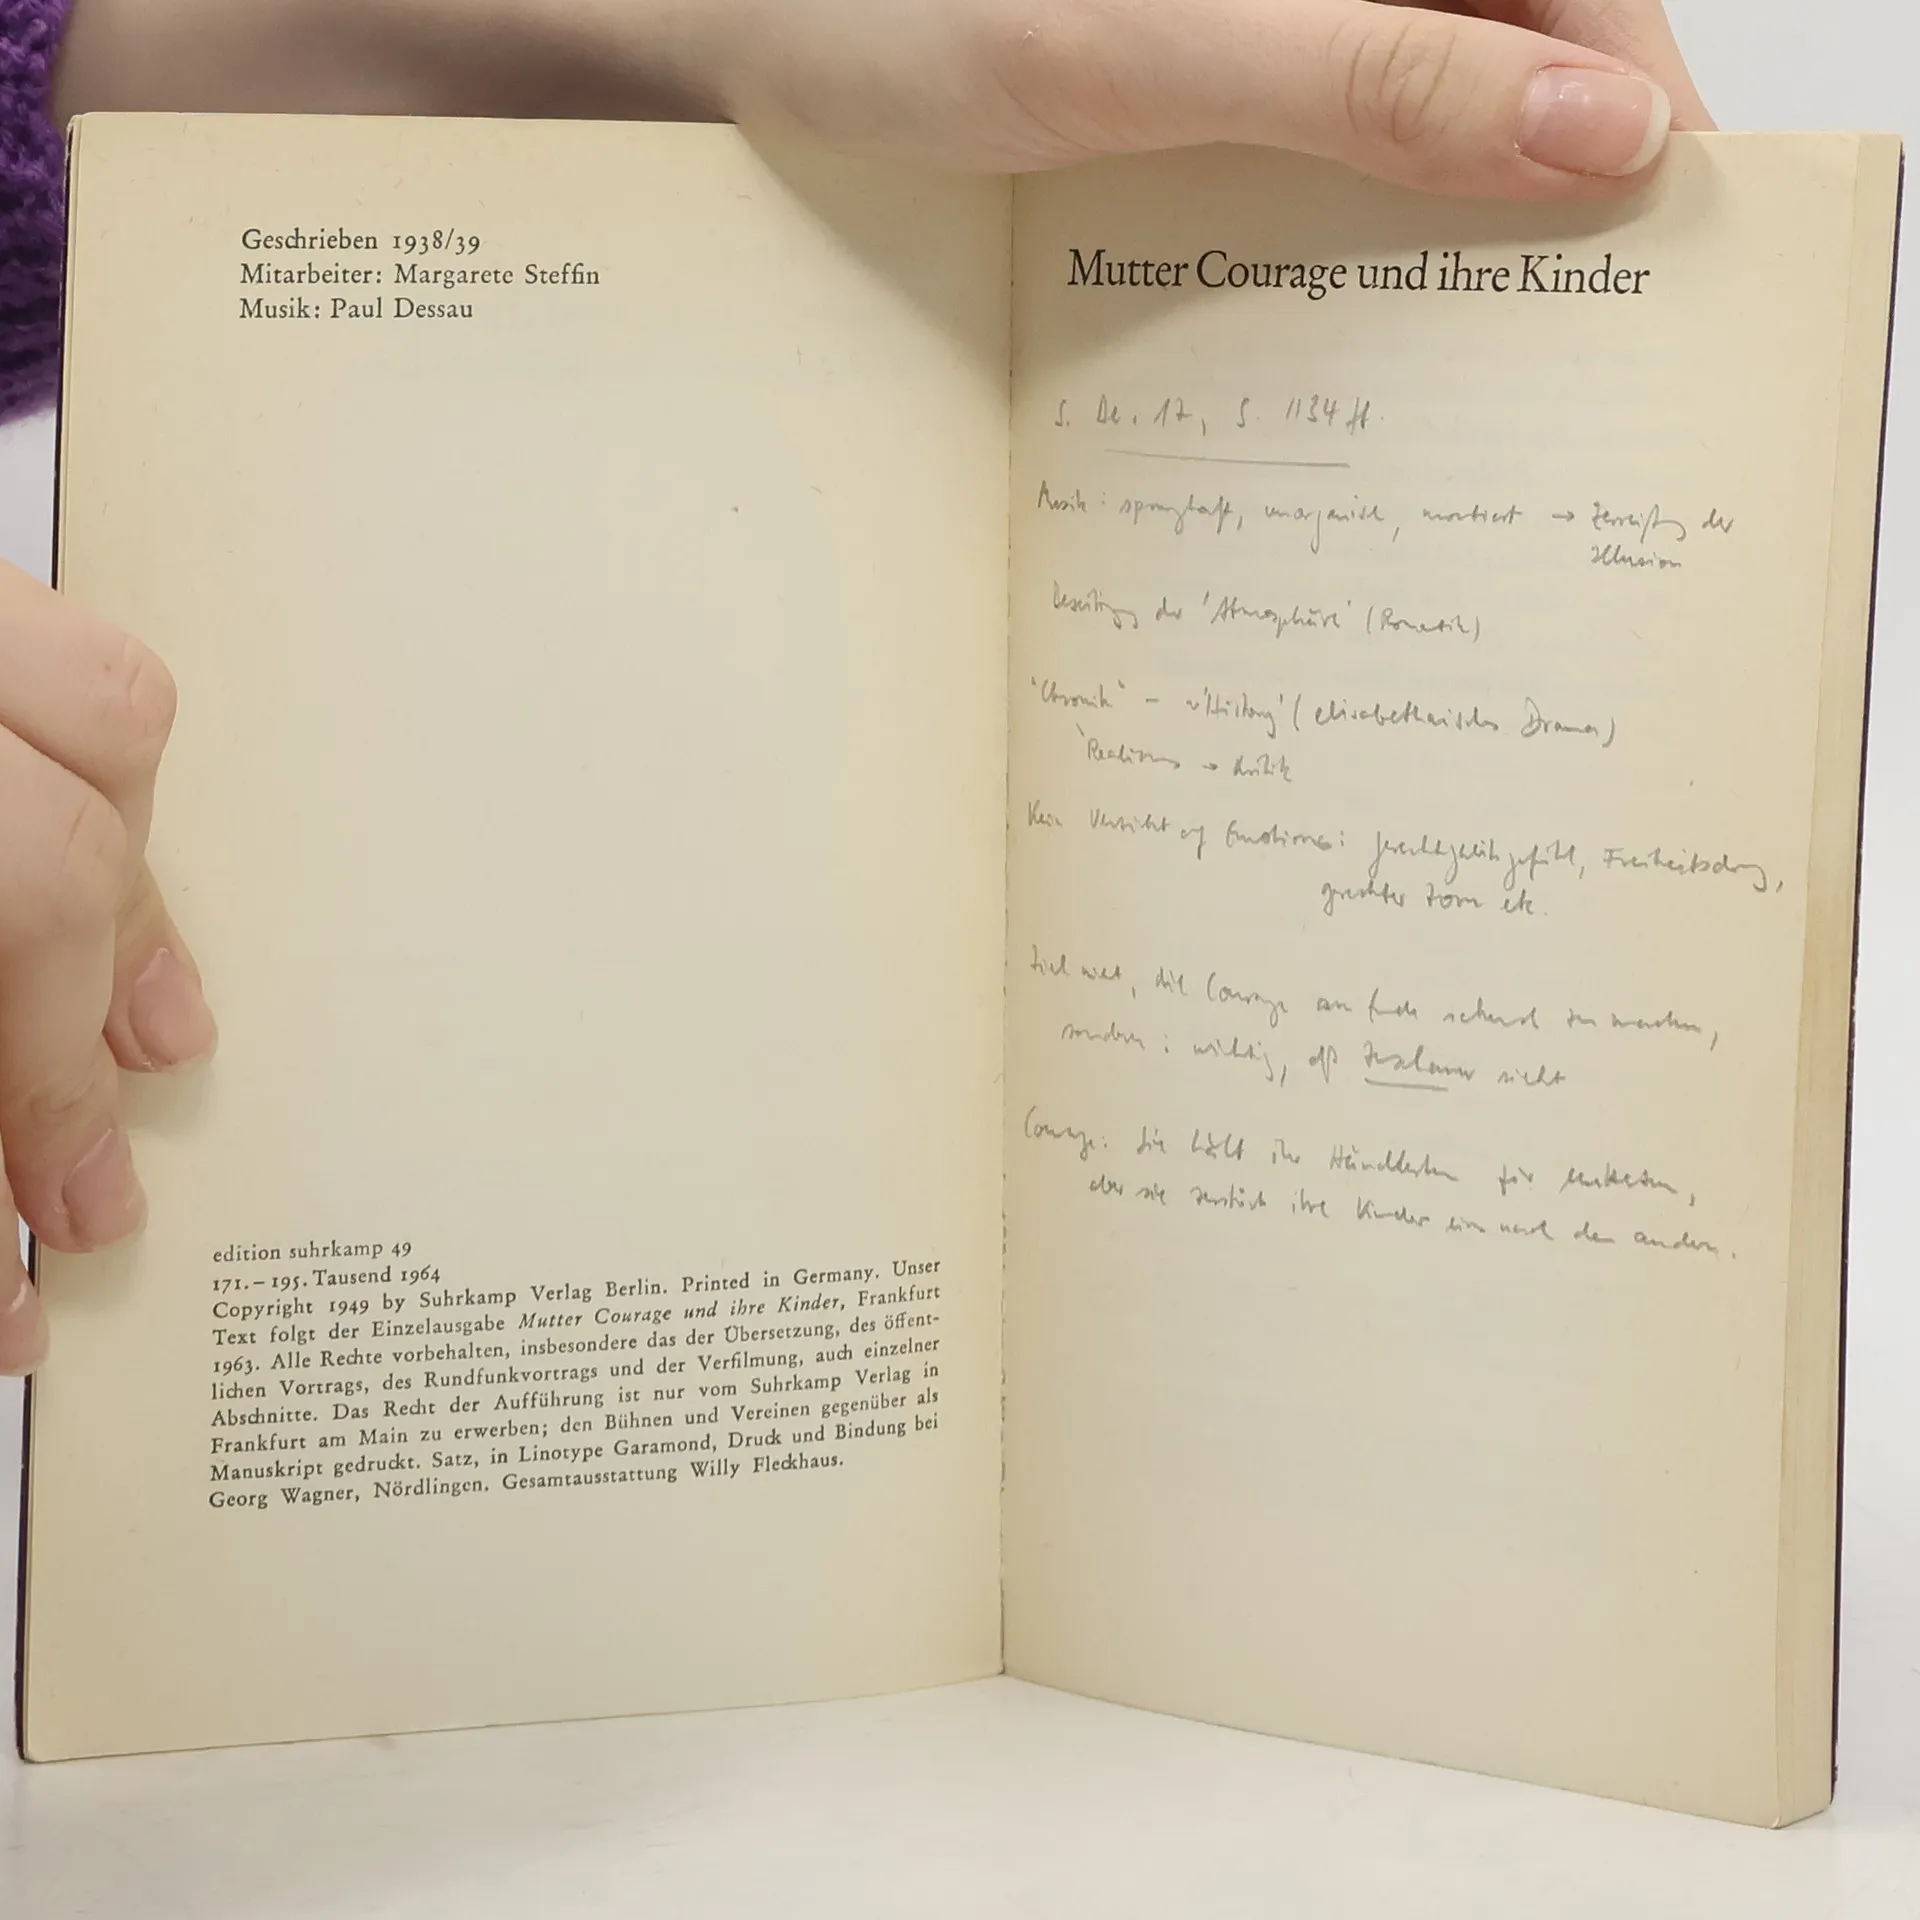 Geschrieben 1938/39
Mitarbeiter: Margarete Steffin
Musik: Paul Dessau
edition suhrkamp 49
171.–195. Tausend 1964
Copyright 1949 by Suhrkamp Verlag Berlin. Printed in Germany. Unser
Text folgt der Einzelausgabe Mutter Courage und ihre Kinder, Frankfurt
1963. Alle Rechte vorbehalten, insbesondere das der Übersetzung, des öffent-
lichen Vortrags, des Rundfunkvortrags und der Verfilmung, auch einzelner
Abschnitte. Das Recht der Aufführung ist nur vom Suhrkamp Verlag in
Frankfurt am Main zu erwerben; den Bühnen und Vereinen gegenüber als
Manuskript gedruckt. Satz, in Linotype Garamond, Druck und Bindung bei
Georg Wagner, Nördlingen. Gesamtausstattung Willy Fleckhaus.
Mutter Courage und ihre Kinder
s. 17, S. 1134 ff.
Musik: sprunghaft, unorganisch, montiert → Zerreißung der
Illusion
Beseitigung der 'Atmosphäre' (Romantik)
"Chronik" – 'History' (elisabethanisches Drama)
Realismus → Kritik
Kein Verzicht auf Emotionen: Gerechtigkeitsgefühl, Freiheitsdrang,
gerechter Zorn etc.
Ziel nicht, die Courage am Ende sehend zu machen,
sondern: wichtig, daß Zuschauer sieht
Courage: Sie hält ihr für
aber sie ihre Kinder eins nach dem andern.